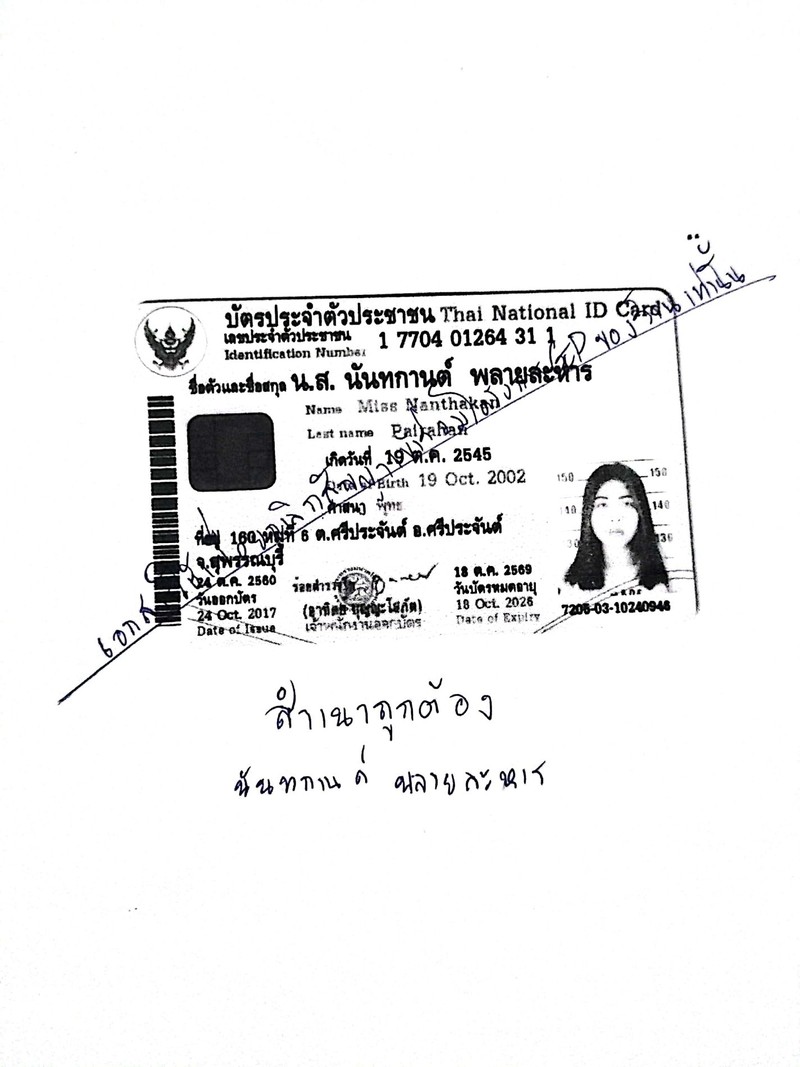 บัตรประจำตัวประชาชน Thai National ID Card
เลขประจำตัวประชาชน
Identification Number
1 7704 01264 31 1
ชื่อตัวและชื่อสกุล น.ส. นันทกานต์ พลายสะหาร
Name Miss Nanthakan
Last name
เกิดวันที่ 19 ต.ค. 2545
Date of Birth 19 Oct. 2002
ศาสนา พุทธ
ที่อยู่ 160 หมู่ที่ 6 ต.ศรีประจันต์ อ.ศรีประจันต์
จ.สุพรรณบุรี
24 ต.ค. 2560
วันออกบัตร
24 Oct. 2017
Date of Issue
เจ้าพนักงานออกบัตร
18 ต.ค. 2569
วันบัตรหมดอายุ
18 Oct. 2026
Date of Expiry
150 150
140
7206-03-10240946
เท่านั้น
สำเนาถูกต้อง
นันทกานต์ พลายสะหาร